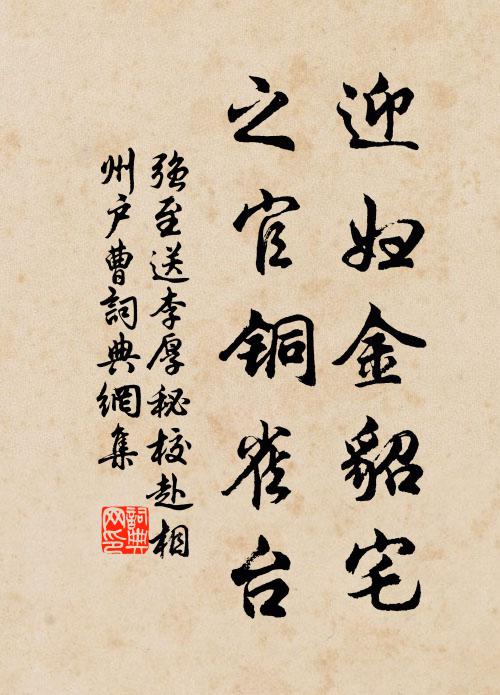 迎妇金貂宅
之官铜雀台
强至送李厚秘校赴相
州户曹詞典網集
詞典
网印